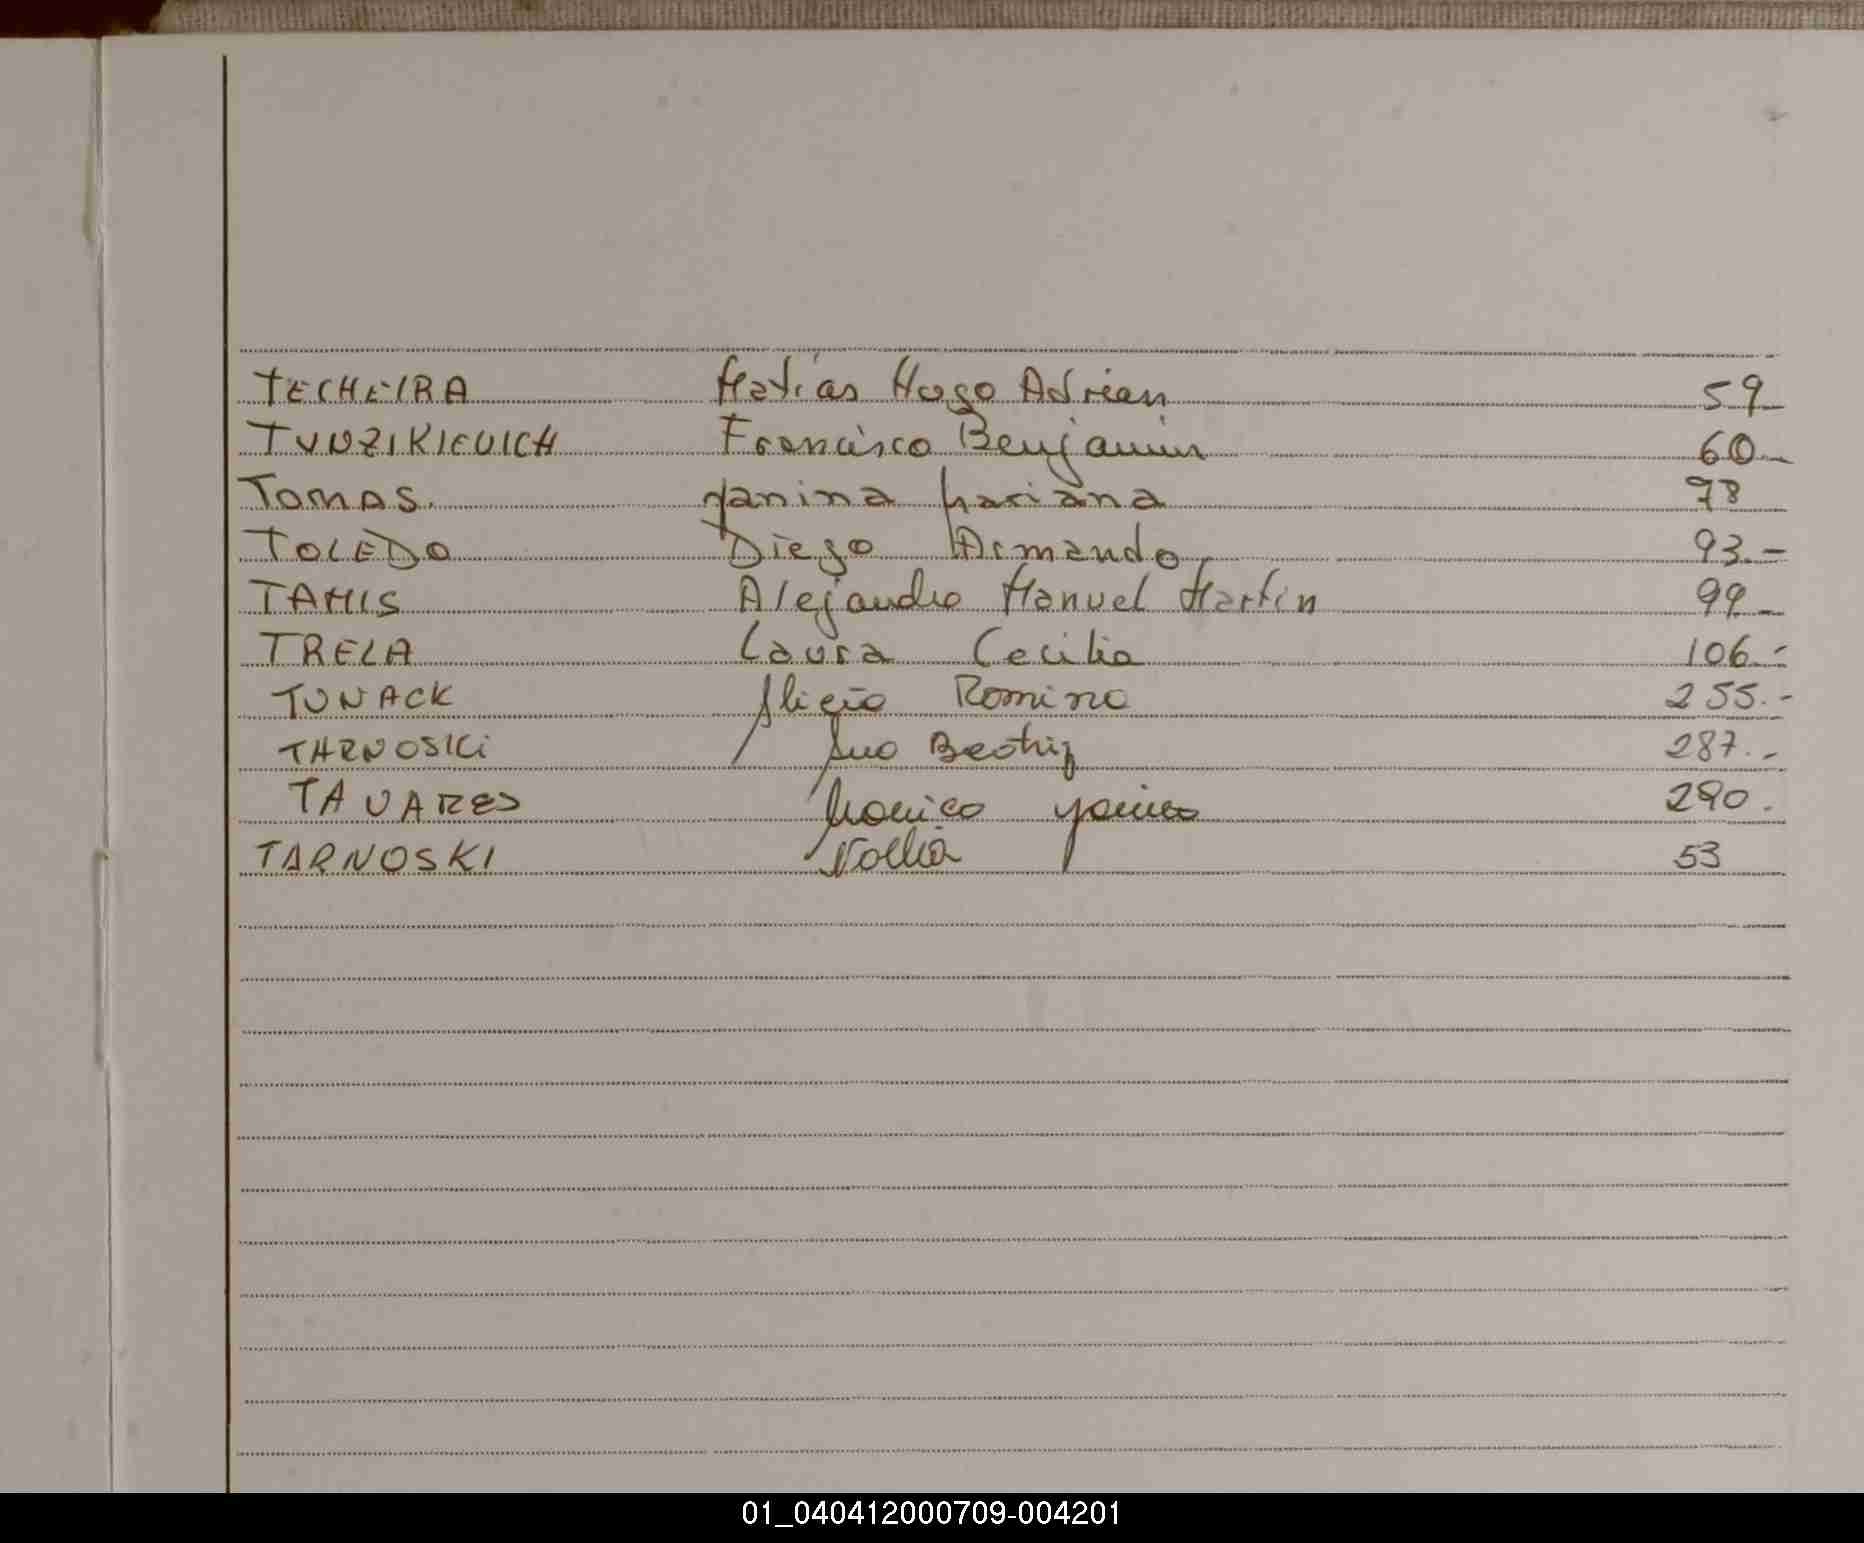 TECHEIRA Matías Hugo Adrian 59
TUNZIKIEVICH Francisco Benjamin 60
TOMAS. Yanina Mariana 78
TOLEDO Diego Armando 93.-
TAMIS Alejandro Manuel Martin 99
TRELA Laura Cecilia 106.-
TUNACK Alicia Romina 255.-
TARNOSKi Ana Beatriz 287.-
TAVARES Monica Yanina 290.
TARNOSKI Noelia 53
01_040412000709-004201